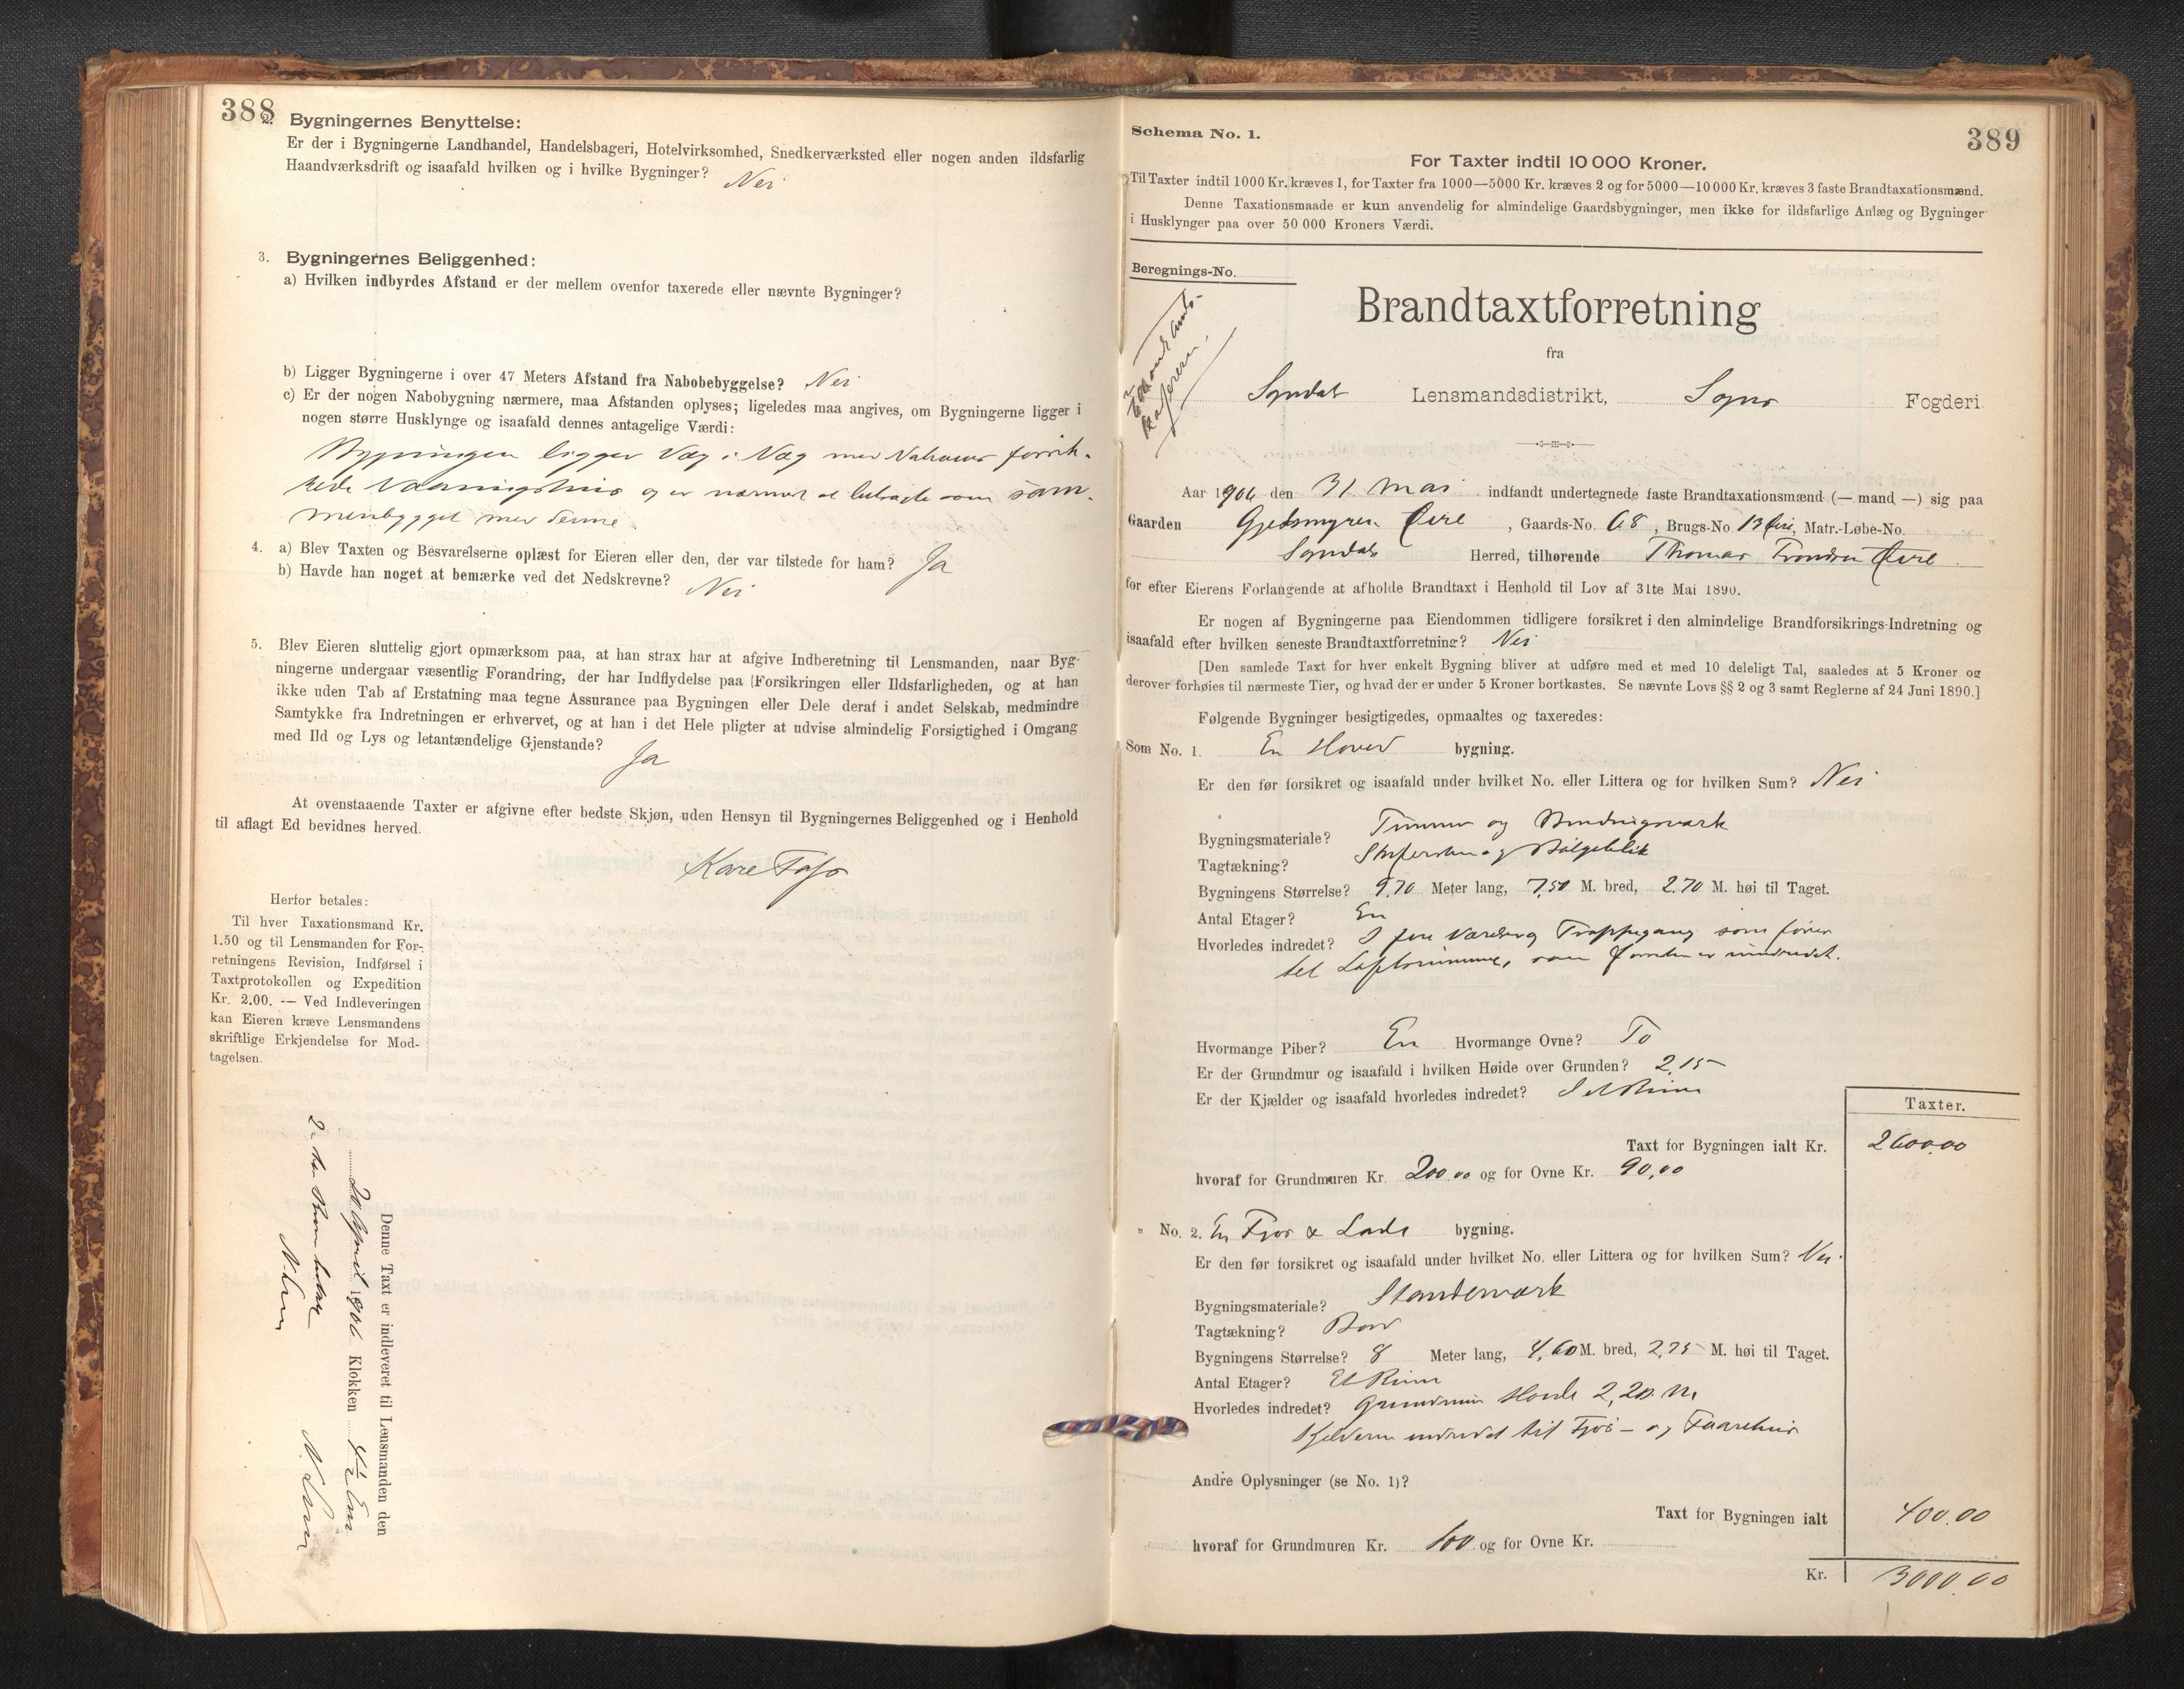 388
2. Bygningernes Benyttelse:
Er der i Bygningerne Landhandel, Handelsbageri, Hotelvirksomhed, Snedkerværksted eller nogen anden ildsfarlig
Haandværksdrift og isaafald hvilken og i hvilke Bygninger? Nei
3. Bygningernes Beliggenhed:
a) Hvilken indbyrdes Afstand er der mellem ovenfor taxerede eller nævnte Bygninger?
b) Ligger Bygningerne i over 47 Meters Afstand fra Nabobebyggelse? Nei
c) Er der nogen Nabobygning nærmere, maa Afstanden oplyses; ligeledes maa angives, om Bygningerne ligger i
nogen større Husklynge og isaafald dennes antagelige Værdi:
Bygningen ligger Væg i Væg med Naboens forsik-
rede Vaaningshus og er nærmest at betragte som sam-
menbygget med denne.
4. a) Blev Taxten og Besvarelserne oplæst for Eieren eller den, der var tilstede for ham? Ja
b) Havde han noget at bemærke ved det Nedskrevne? Nei
5. Blev Eieren sluttelig gjort opmærksom paa, at han strax har at afgive Indberetning til Lensmanden, naar Byg-
ningerne undergaar væsentlig Forandring, der har Indflydelse paa (Forsikringen eller Ildsfarligheden, og at han
ikke uden Tab af Erstatning maa tegne Assurance paa Bygningen eller Dele deraf i andet Selskab, medmindre
Samtykke fra Indretningen er erhvervet, og at han i det Hele pligter at udvise almindelig Forsigtighed i Omgang
med Ild og Lys og letantændelige Gjenstande? Ja
At ovenstaaende Taxter er afgivne efter bedste Skjøn, uden Hensyn til Bygningernes Beliggenhed og i Henhold
til aflagt Ed bevidnes herved.
Herfor betales:
Til hver Taxationsmand Kr.
1.50 og til Lensmanden for For-
retningens Revision, Indførsel i
Taxtprotokollen og Expedition
Kr. 2.00. — Ved Indleveringen
kan Eieren kræve Lensmandens
skriftlige Erkjendelse for Mod-
tagelsen.
Denne Taxt er indleveret til Lensmanden den
1906. Klokken
389
Schema No. 1.
For Taxter indtil 10 000 Kroner.
Til Taxter indtil 1000 Kr. kræves 1, for Taxter fra 1000—5000 Kr. kræves 2 og for 5000—10 000 Kr. kræves 3 faste Brandtaxationsmænd.
Denne Taxationsmaade er kun anvendelig for almindelige Gaardsbygninger, men ikke for ildsfarlige Anlæg og Bygninger
i Husklynger paa over 50 000 Kroners Værdi.
Beregnings-No.
Brandtaxtforretning
fra
Sogndal Lensmandsdistrikt, Sogns Fogderi
Aar 1906 den 31 mai indfandt undertegnede faste Brandtaxationsmænd (— mand —) sig paa
Gaarden Gjedsmyren Øire, Gaards-No. 68, Brugs-No. 13 Øire, Matr.-Løbe-No.
Sogndals Herred, tilhørende Thomas Trondsen Øire
for efter Eierens Forlangende at afholde Brandtaxt i Henhold til Lov af 31te Mai 1890.
Er nogen af Bygningerne paa Eiendommen tidligere forsikret i den almindelige Brandforsikrings-Indretning og
isaafald efter hvilken seneste Brandtaxtforretning? Nei
[Den samlede Taxt for hver enkelt Bygning bliver at udføre med et med 10 deleligt Tal, saaledes at 5 Kroner og
derover forhøies til nærmeste Tier, og hvad der er under 5 Kroner bortkastes. Se nævnte Lovs §§ 2 og 3 samt Reglerne af 24 Juni 1890.]
Følgende Bygninger besigtigedes, opmaaltes og taxeredes:
Som No. 1. En Hoved bygning.
Er den før forsikret og isaafald under hvilket No. eller Littera og for hvilken Sum? Nei
Bygningsmateriale? Tømmer og Bindingsværk
Tagtækning? Skifersten og Bølgeblik
Bygningens Størrelse? 9,70 Meter lang, 7,50 M. bred, 2.70 M. høi til Taget.
Antal Etager? En
Hvorledes indredet? I fire Værelser og Trappegang som fører
til Loftsrummet, som foruden er uindredet.
Hvormange Piber? En Hvormange Ovne? To
Er der Grundmur og isaafald i hvilken Høide over Grunden? 2,15
Er der Kjælder og isaafald hvorledes indredet? I et Rum
Taxter.
Taxt for Bygningen ialt Kr. 2600.00
hvoraf for Grundmuren Kr. 200.00 og for Ovne Kr. 90,00
" No. 2. En Fjøs & Lade bygning.
Er den før forsikret og isaafald under hvilket No. eller Littera og for hvilken Sum? Nei.
Bygningsmateriale? Standerværk
Tagtækning? Bord
Bygningens Størrelse? 8 Meter lang, 4,60 M. bred, 2,75 M. høi til Taget.
Antal Etager? Et Rum
Hvorledes indredet? Grundmur Høide 2,20 M.
Kjelderen indredet til Fjøs- og Faarehus
Andre Oplysninger (se No. 1)?
Taxt for Bygningen ialt 400.00
hvoraf for Grundmuren Kr. 100 og for Ovne Kr.
Kr. 3000.00